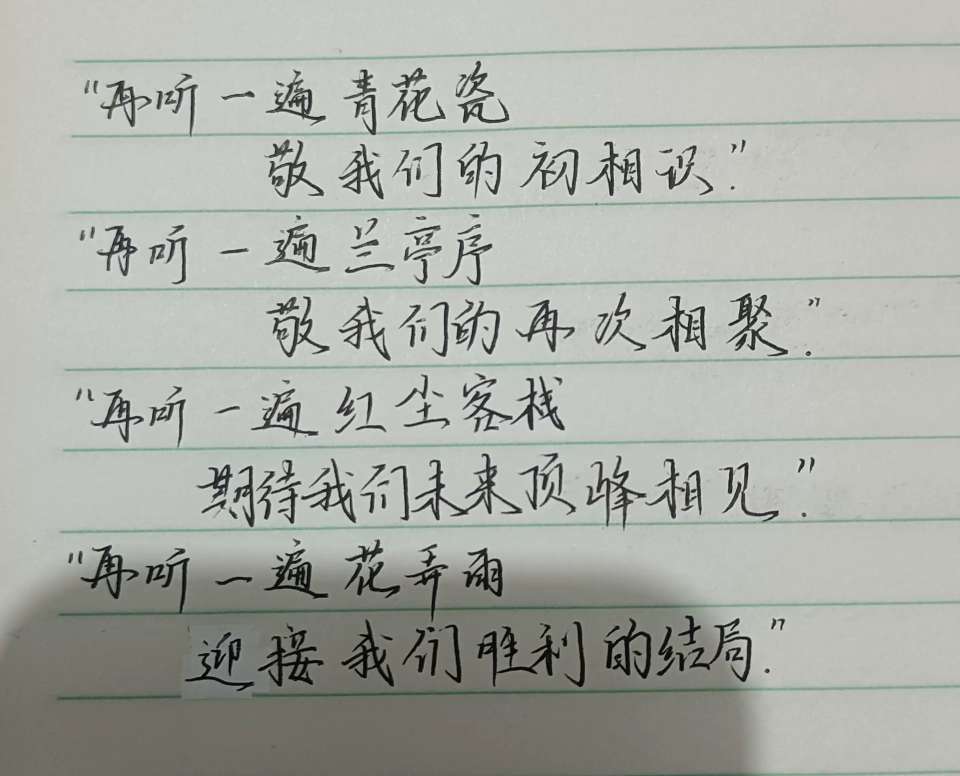 “再听一遍青花瓷
敬我们的初相识.”
“再听一遍兰亭序
敬我们的再次相聚.”
“再听一遍红尘客栈
期待我们未来顶峰相见.”
“再听一遍花弄雨
迎接我们胜利的结局.”